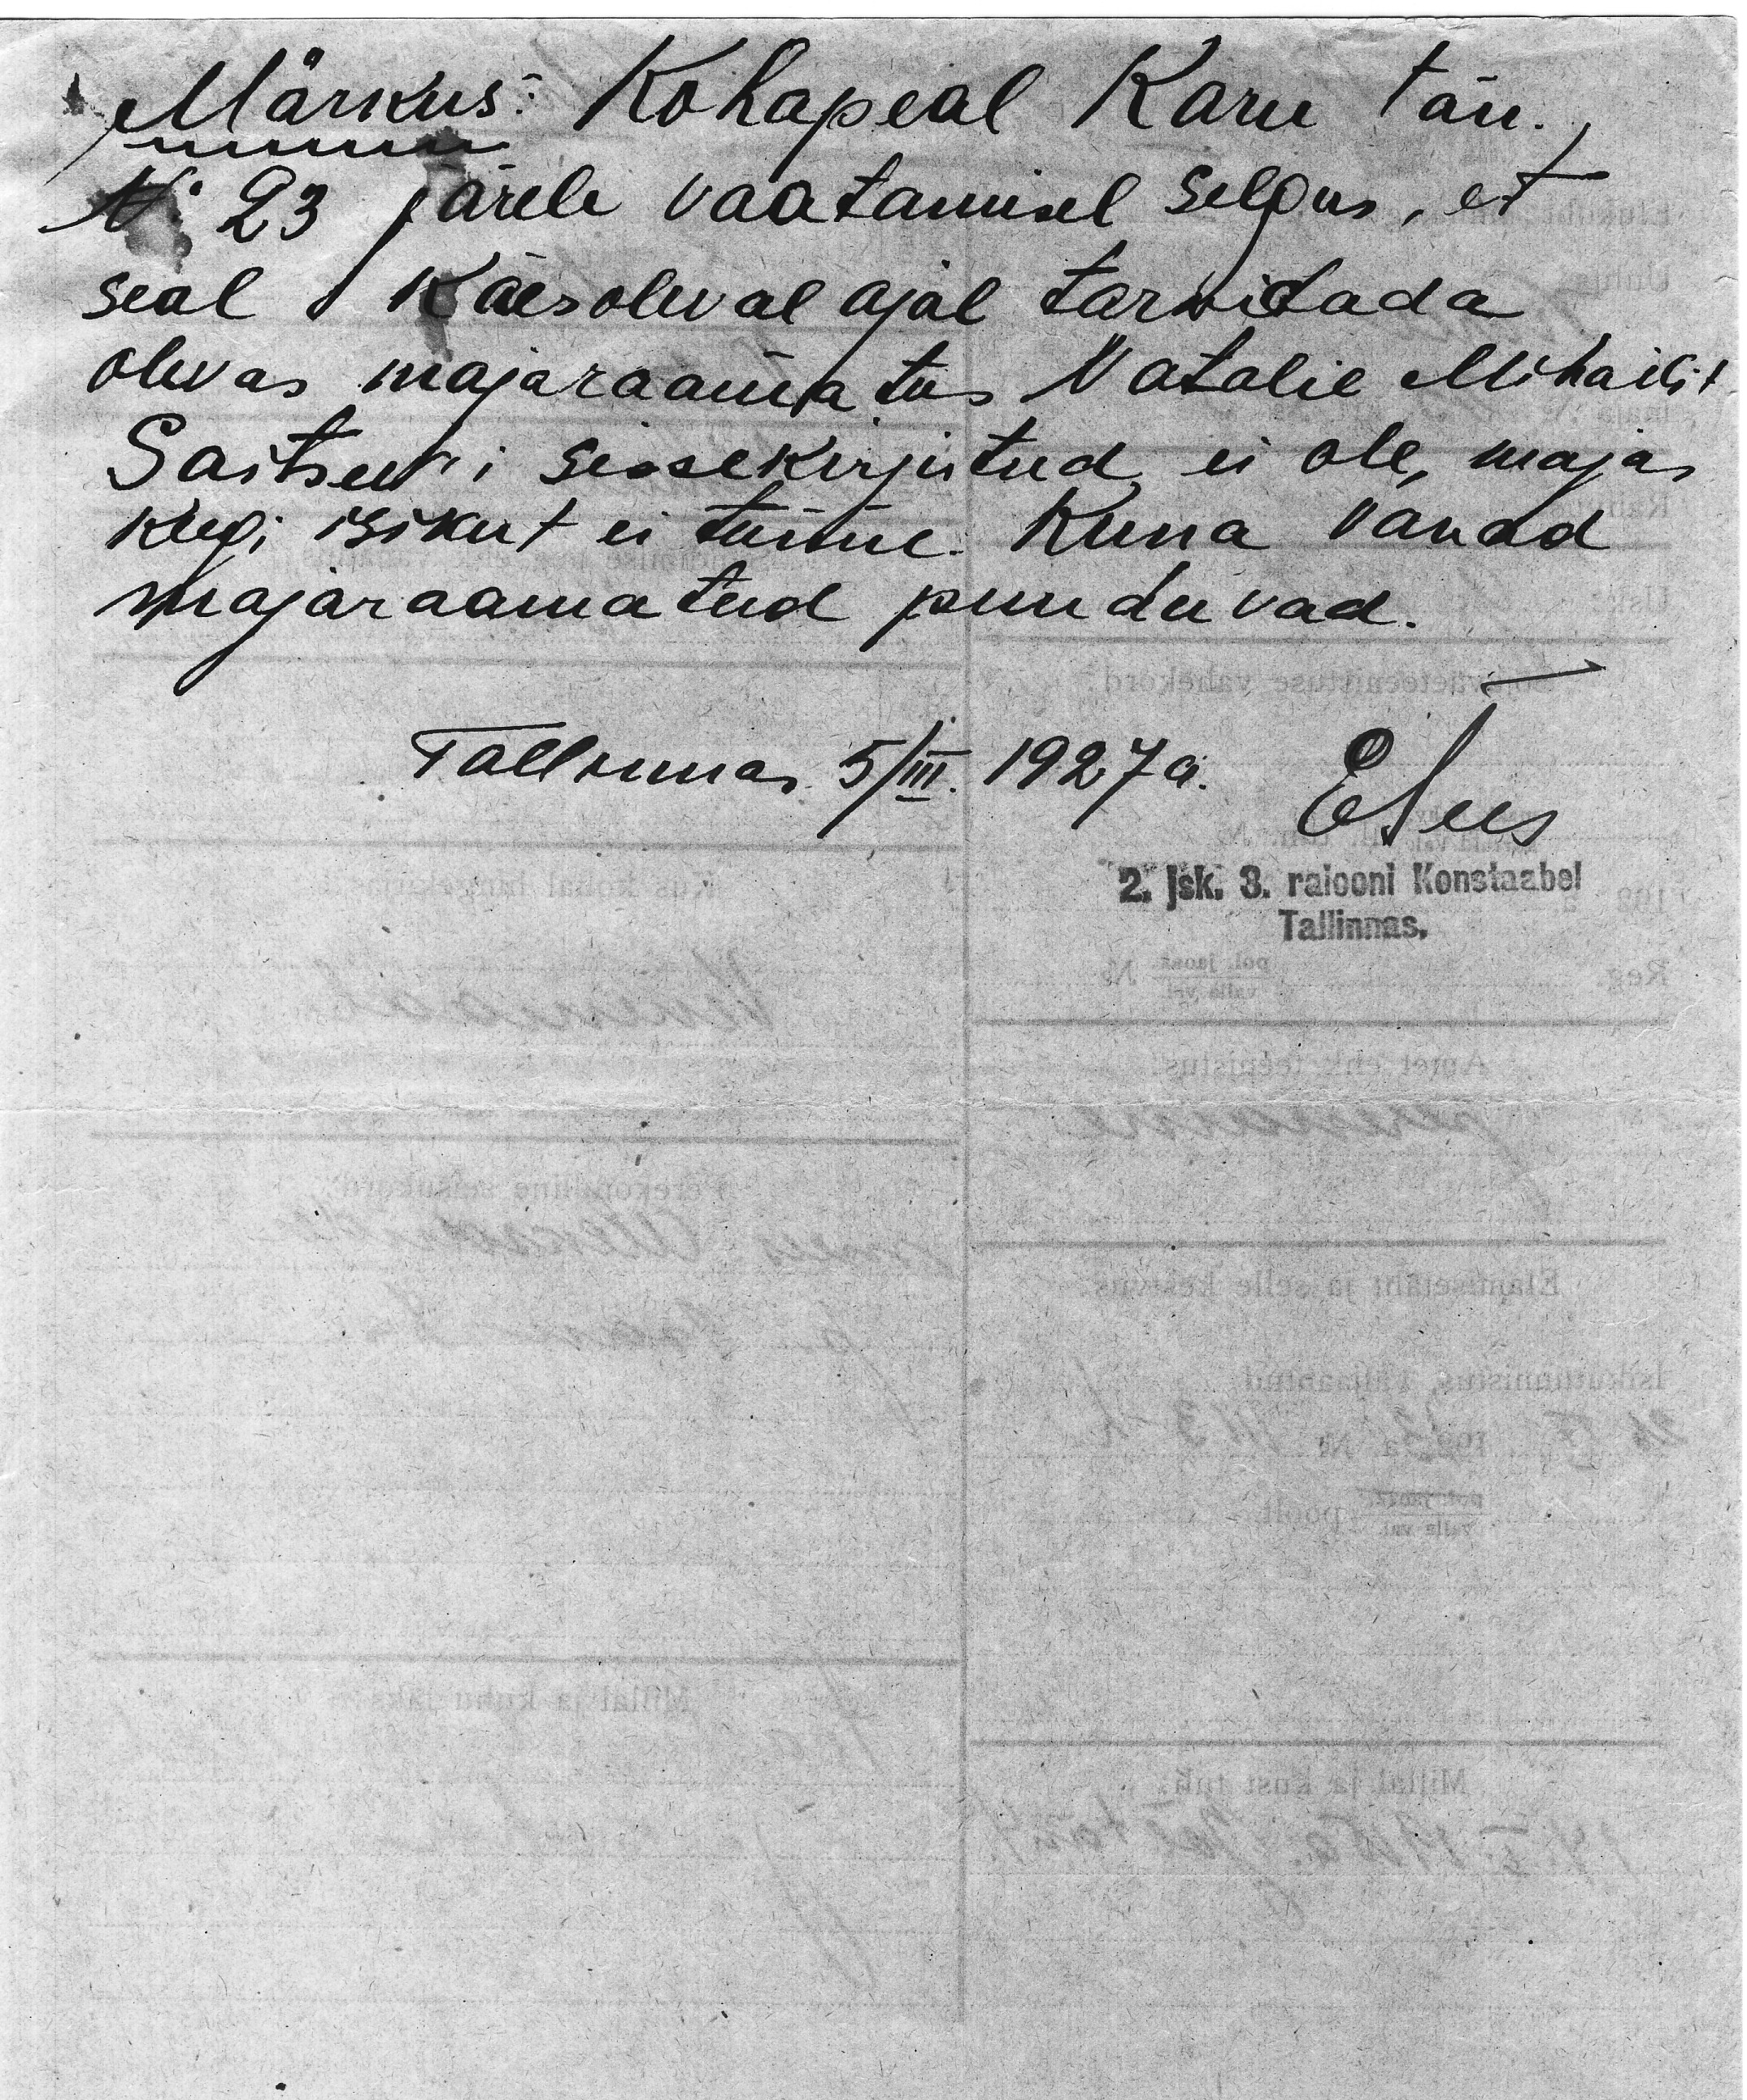 Märkus: Kohapeal Karu tän.
№ 23 järele vaatamisel selgus, et
seal käesoleval ajal tarvitada
olevas majaraamatus Natalie Mihailit
Saitsev'i sissekirjutud ei ole, majas
keegi isikut ei tunne. Kuna vanad
majaraamatud puuduvad.
Tallinnas 5/III. 1927 a.
2. jsk. 3. raiooni Konstaabel
Tallinnas.